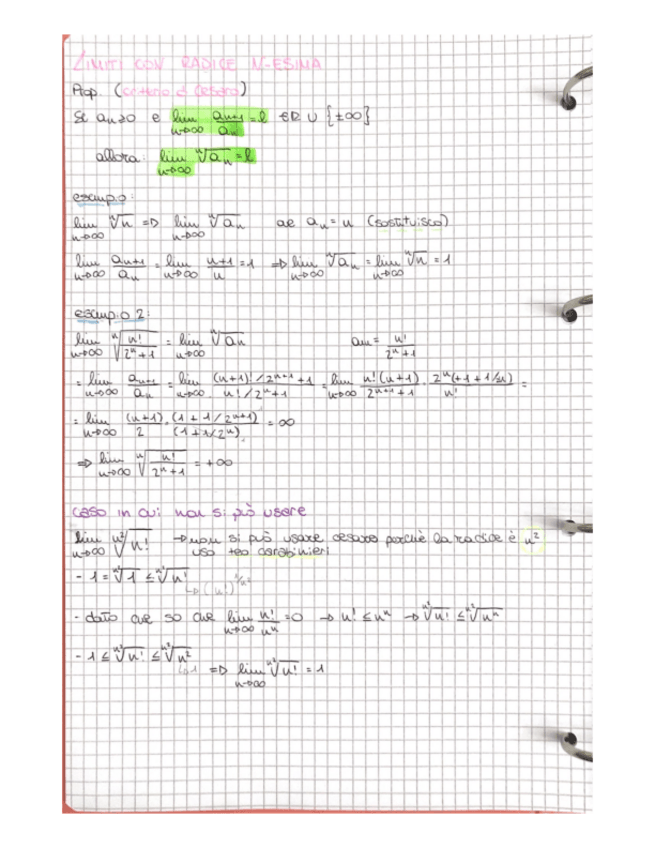 LIMITI CON RADICE N-ESIMA
Prop. (criterio di Cesaro)
Se an≥0 e lim n→∞ an+1/an = l ∈ℝ ∪ {±∞}
allora: lim n→∞ ⁿ√an = l
esempio:
lim n→∞ ⁿ√n => lim n→∞ ⁿ√an an = n (sostituisco)
lim n→∞ an+1/an = lim n→∞ n+1/n = 1 => lim n→∞ ⁿ√an = lim n→∞ ⁿ√n = 1
esempio 2:
lim n→∞ ⁿ√(n!/2ⁿ+1) = lim n→∞ ⁿ√an an = n!/2ⁿ+1
= lim n→∞ an+1/an = lim n→∞ (n+1)!/2ⁿ⁺¹+1 / n!/2ⁿ+1 = lim n→∞ n!(n+1)/2ⁿ⁺¹+1 · 2ⁿ(1+1/2ⁿ)/n! =
= lim n→∞ (n+1)/2 · (1+1/2ⁿ⁺¹)/(1+1/2ⁿ) = ∞
=> lim n→∞ ⁿ√(n!/2ⁿ+1) = +∞
caso in cui non si può usare
lim n→∞ ⁿ²√n! → non si può usare cesaro perchè la radice è n²
uso teo carabinieri
- 1 = ⁿ²√1 ≤ ⁿ²√n!
↳ (n!)^1/n²
- dato che so che lim n→∞ n!/nⁿ = 0 → n! ≤ nⁿ → ⁿ²√n! ≤ ⁿ²√nⁿ
- 1 ≤ ⁿ²√n! ≤ ⁿ²√n²
↳1 => lim n→∞ ⁿ²√n! = 1